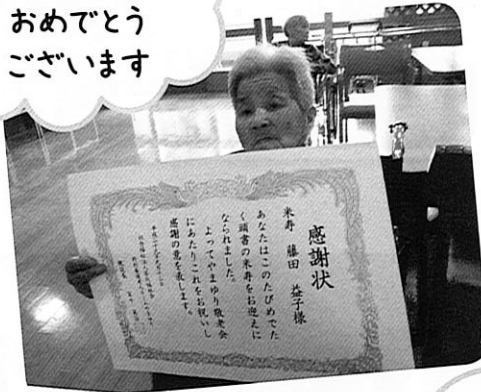 おめでとう
ございます
感謝状
米寿 藤田 益子様
あなたはこのたびめでた
く頭書の米寿をお迎えに
なられました。
よってやまゆり敬老会
にあたりこれをお祝いし
感謝の意を表します。